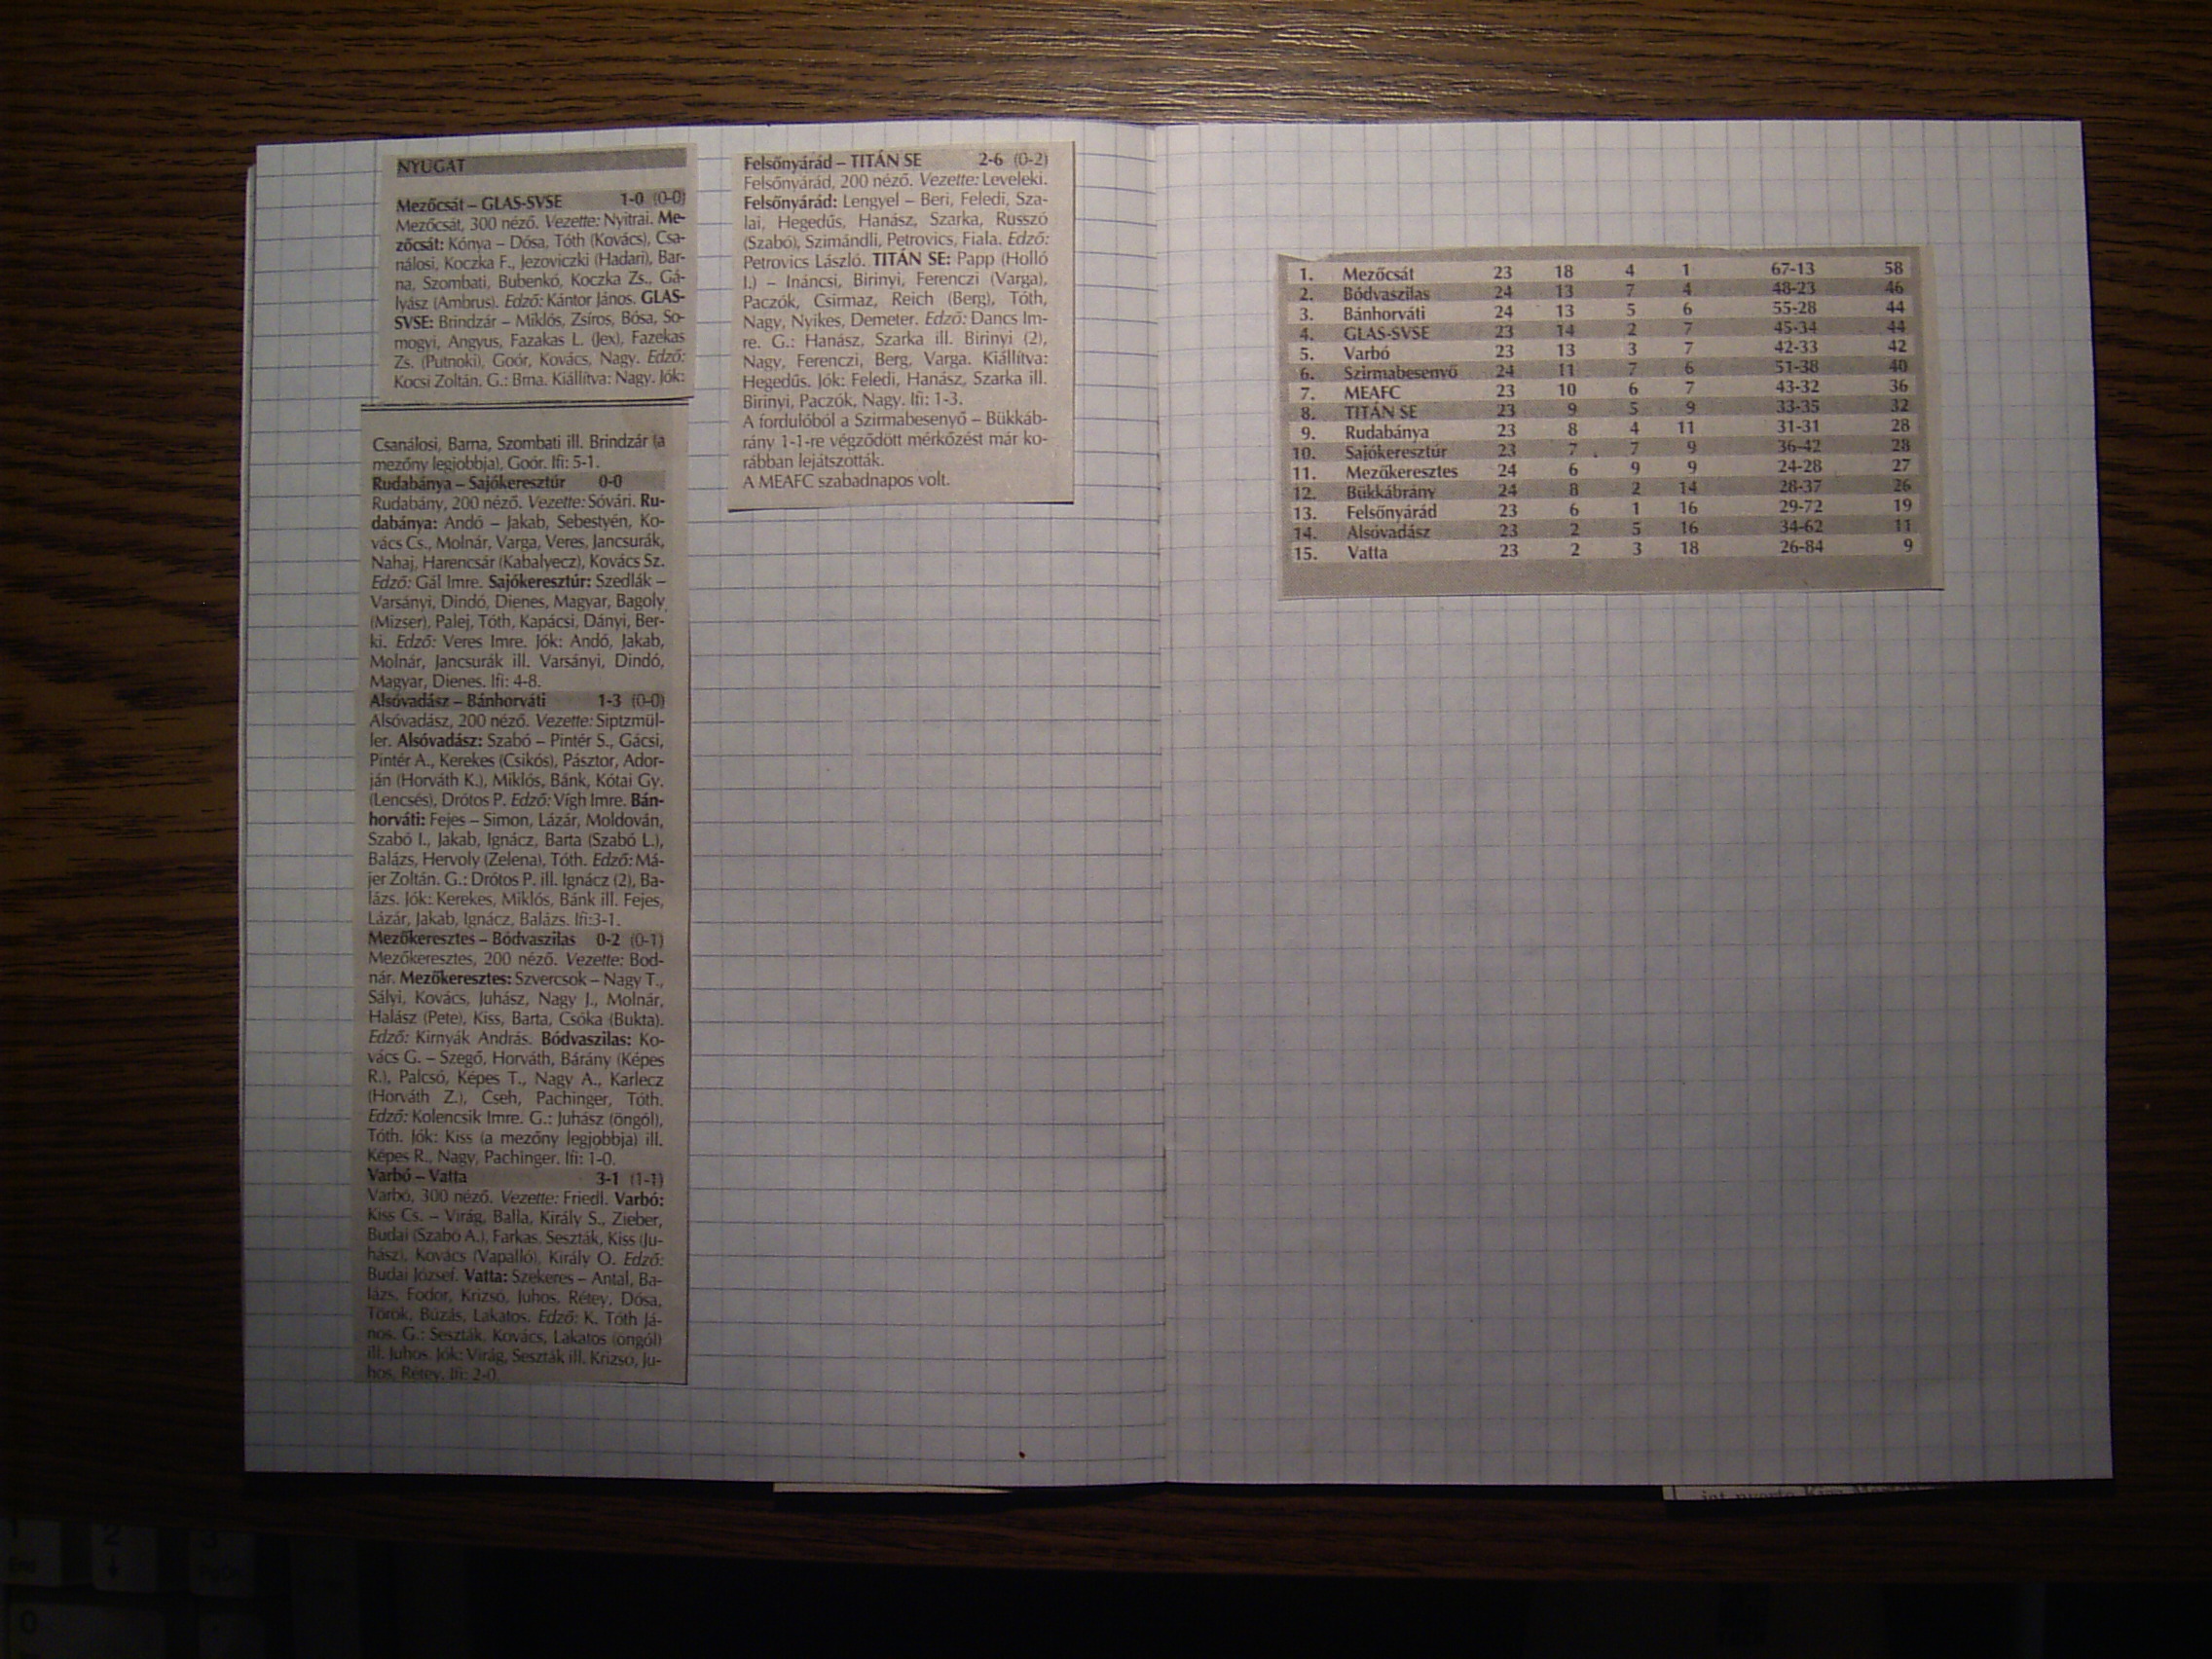 NYUGAT
Mezőcsát – GLAS-SVSE 1-0 (0-0)
Mezőcsát, 300 néző. Vezette: Nyitrai. Me-
zőcsát: Kónya – Dósa, Tóth (Kovács), Csa-
nálosi, Koczka F., Jezoviczki (Hadari), Bar-
na, Szombati, Bubenkó, Koczka Zs., Gá-
lyász (Ambrus). Edző: Kántor János. GLAS-
SVSE: Brindzár – Miklós, Zsíros, Bósa, So-
mogyi, Angyus, Fazakas L. (Jex), Fazekas
Zs. (Putnoki), Goór, Kovács, Nagy. Edző:
Kocsi Zoltán. G.: Brna. Kiállítva: Nagy. Jók:
Csanálosi, Barna, Szombati ill. Brindzár (a
mezőny legjobbja), Goór. Ifi: 5-1.
Rudabánya – Sajókeresztúr 0-0
Rudabány, 200 néző. Vezette: Sóvári. Ru-
dabánya: Andó – Jakab, Sebestyén, Ko-
vács Cs., Molnár, Varga, Veres, Jancsurák,
Nahaj, Harencsár (Kabalyecz), Kovács Sz.
Edző: Gál Imre. Sajókeresztúr: Szedlák –
Varsányi, Dindó, Dienes, Magyar, Bagoly
(Mizser), Palej, Tóth, Kapácsi, Dányi, Ber-
ki. Edző: Veres Imre. Jók: Andó, Jakab,
Molnár, Jancsurák ill. Varsányi, Dindó,
Magyar, Dienes. Ifi: 4-8.
Alsóvadász – Bánhorváti 1-3 (0-0)
Alsóvadász, 200 néző. Vezette: Siptzmül-
ler. Alsóvadász: Szabó – Pintér S., Gácsi,
Pintér A., Kerekes (Csikós), Pásztor, Ador-
ján (Horváth K.), Miklós, Bánk, Kótai Gy.
(Lencsés), Drótos P. Edző: Vígh Imre. Bán-
horváti: Fejes – Simon, Lázár, Moldován,
Szabó I., Jakab, Ignácz, Barta (Szabó L.),
Balázs, Hervoly (Zelena), Tóth. Edző: Má-
jer Zoltán. G.: Drótos P. ill. Ignácz (2), Ba-
lázs. Jók: Kerekes, Miklós, Bánk ill. Fejes,
Lázár, Jakab, Ignácz, Balázs. Ifi:3-1.
Mezőkeresztes – Bódvaszilas 0-2 (0-1)
Mezőkeresztes, 200 néző. Vezette: Bod-
nár. Mezőkeresztes: Szvercsok – Nagy T.,
Sályi, Kovács, Juhász, Nagy J., Molnár,
Halász (Pete), Kiss, Barta, Csóka (Bukta).
Edző: Kirnyák András. Bódvaszilas: Ko-
vács G. – Szegő, Horváth, Bárány (Képes
R.), Palcsó, Képes T., Nagy A., Karlecz
(Horváth Z.), Cseh, Pachinger, Tóth.
Edző: Kolencsik Imre. G.: Juhász (öngól),
Tóth. Jók: Kiss (a mezőny legjobbja) ill.
Képes R., Nagy, Pachinger. Ifi: 1-0.
Varbó – Vatta 3-1 (1-1)
Varbó, 300 néző. Vezette: Friedl. Varbó:
Kiss Cs. – Virág, Balla, Király S., Zieber,
Budai (Szabó A.), Farkas, Seszták, Kiss (Ju-
hász), Kovács (Vapalló), Király O. Edző:
Budai József. Vatta: Szekeres – Antal, Ba-
lázs, Fodor, Krizsó, Juhos, Rétey, Dósa,
Török, Búzás, Lakatos. Edző: K. Tóth Já-
nos. G.: Seszták, Kovács, Lakatos (öngól)
ill. Juhos. Jók: Virág, Seszták ill. Krizso, Ju-
hos, Rétey. Ifi: 2-0.
Felsőnyárád – TITÁN SE 2-6 (0-2)
Felsőnyárád, 200 néző. Vezette: Leveleki.
Felsőnyárád: Lengyel – Beri, Feledi, Sza-
lai, Hegedűs, Hanász, Szarka, Russzó
(Szabó), Szimándli, Petrovics, Fiala. Edző:
Petrovics László. TITÁN SE: Papp (Holló
I.) – Ináncsi, Birinyi, Ferenczi (Varga),
Paczók, Csirmaz, Reich (Berg), Tóth,
Nagy, Nyikes, Demeter. Edző: Dancs Im-
re. G.: Hanász, Szarka ill. Birinyi (2),
Nagy, Ferenczi, Berg, Varga. Kiállítva:
Hegedűs. Jók: Feledi, Hanász, Szarka ill.
Birinyi, Paczók, Nagy. Ifi: 1-3.
A fordulóból a Szirmabesenyő – Bükkáb-
rány 1-1-re végződött mérkőzést már ko-
rábban lejátszották.
A MEAFC szabadnapos volt.
1. Mezőcsát 23 18 4 1 67-13 58
2. Bódvaszilas 24 13 7 4 48-23 46
3. Bánhorváti 24 13 5 6 55-28 44
4. GLAS-SVSE 23 14 2 7 45-34 44
5. Varbó 23 13 3 7 42-33 42
6. Szirmabesenyő 24 11 7 6 51-38 40
7. MEAFC 23 10 6 7 43-32 36
8. TITÁN SE 23 9 5 9 33-35 32
9. Rudabánya 23 8 4 11 31-31 28
10. Sajókeresztúr 23 7 7 9 36-42 28
11. Mezőkeresztes 24 6 9 9 24-28 27
12. Bükkábrány 24 8 2 14 28-37 26
13. Felsőnyárád 23 6 1 16 29-72 19
14. Alsóvadász 23 2 5 16 34-62 11
15. Vatta 23 2 3 18 26-84 9
1
2
3
0